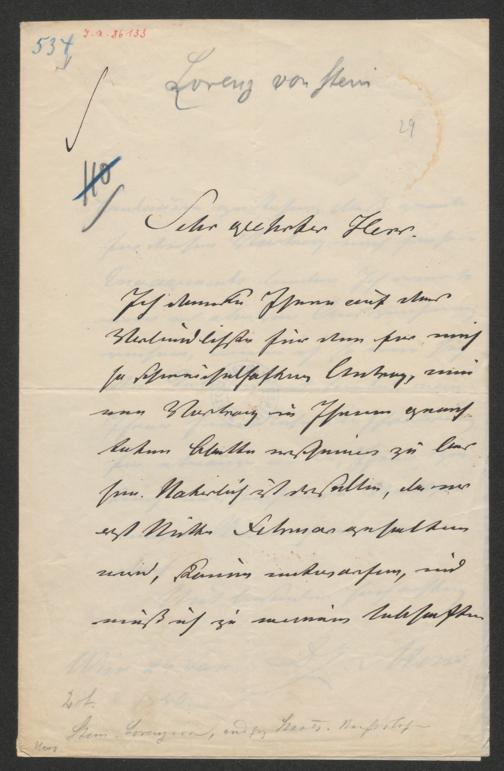 534
J.N. 36133
Lorenz von Stein
29
110
Sehr geehrter Herr.
Ich danke Ihnen auf das
Verbindlichste für den für mich
so schmeichelhaften Antrag, mei
nen Vortrag in Ihrem geach
teten Blatte erscheinen zu las
sen. Natürlich ist derselbe, da er
erst Mitte Februar gehalten
wird, kaum entworfen, und
muß ich zu meinem lebhaften
Stein Lorenz von,